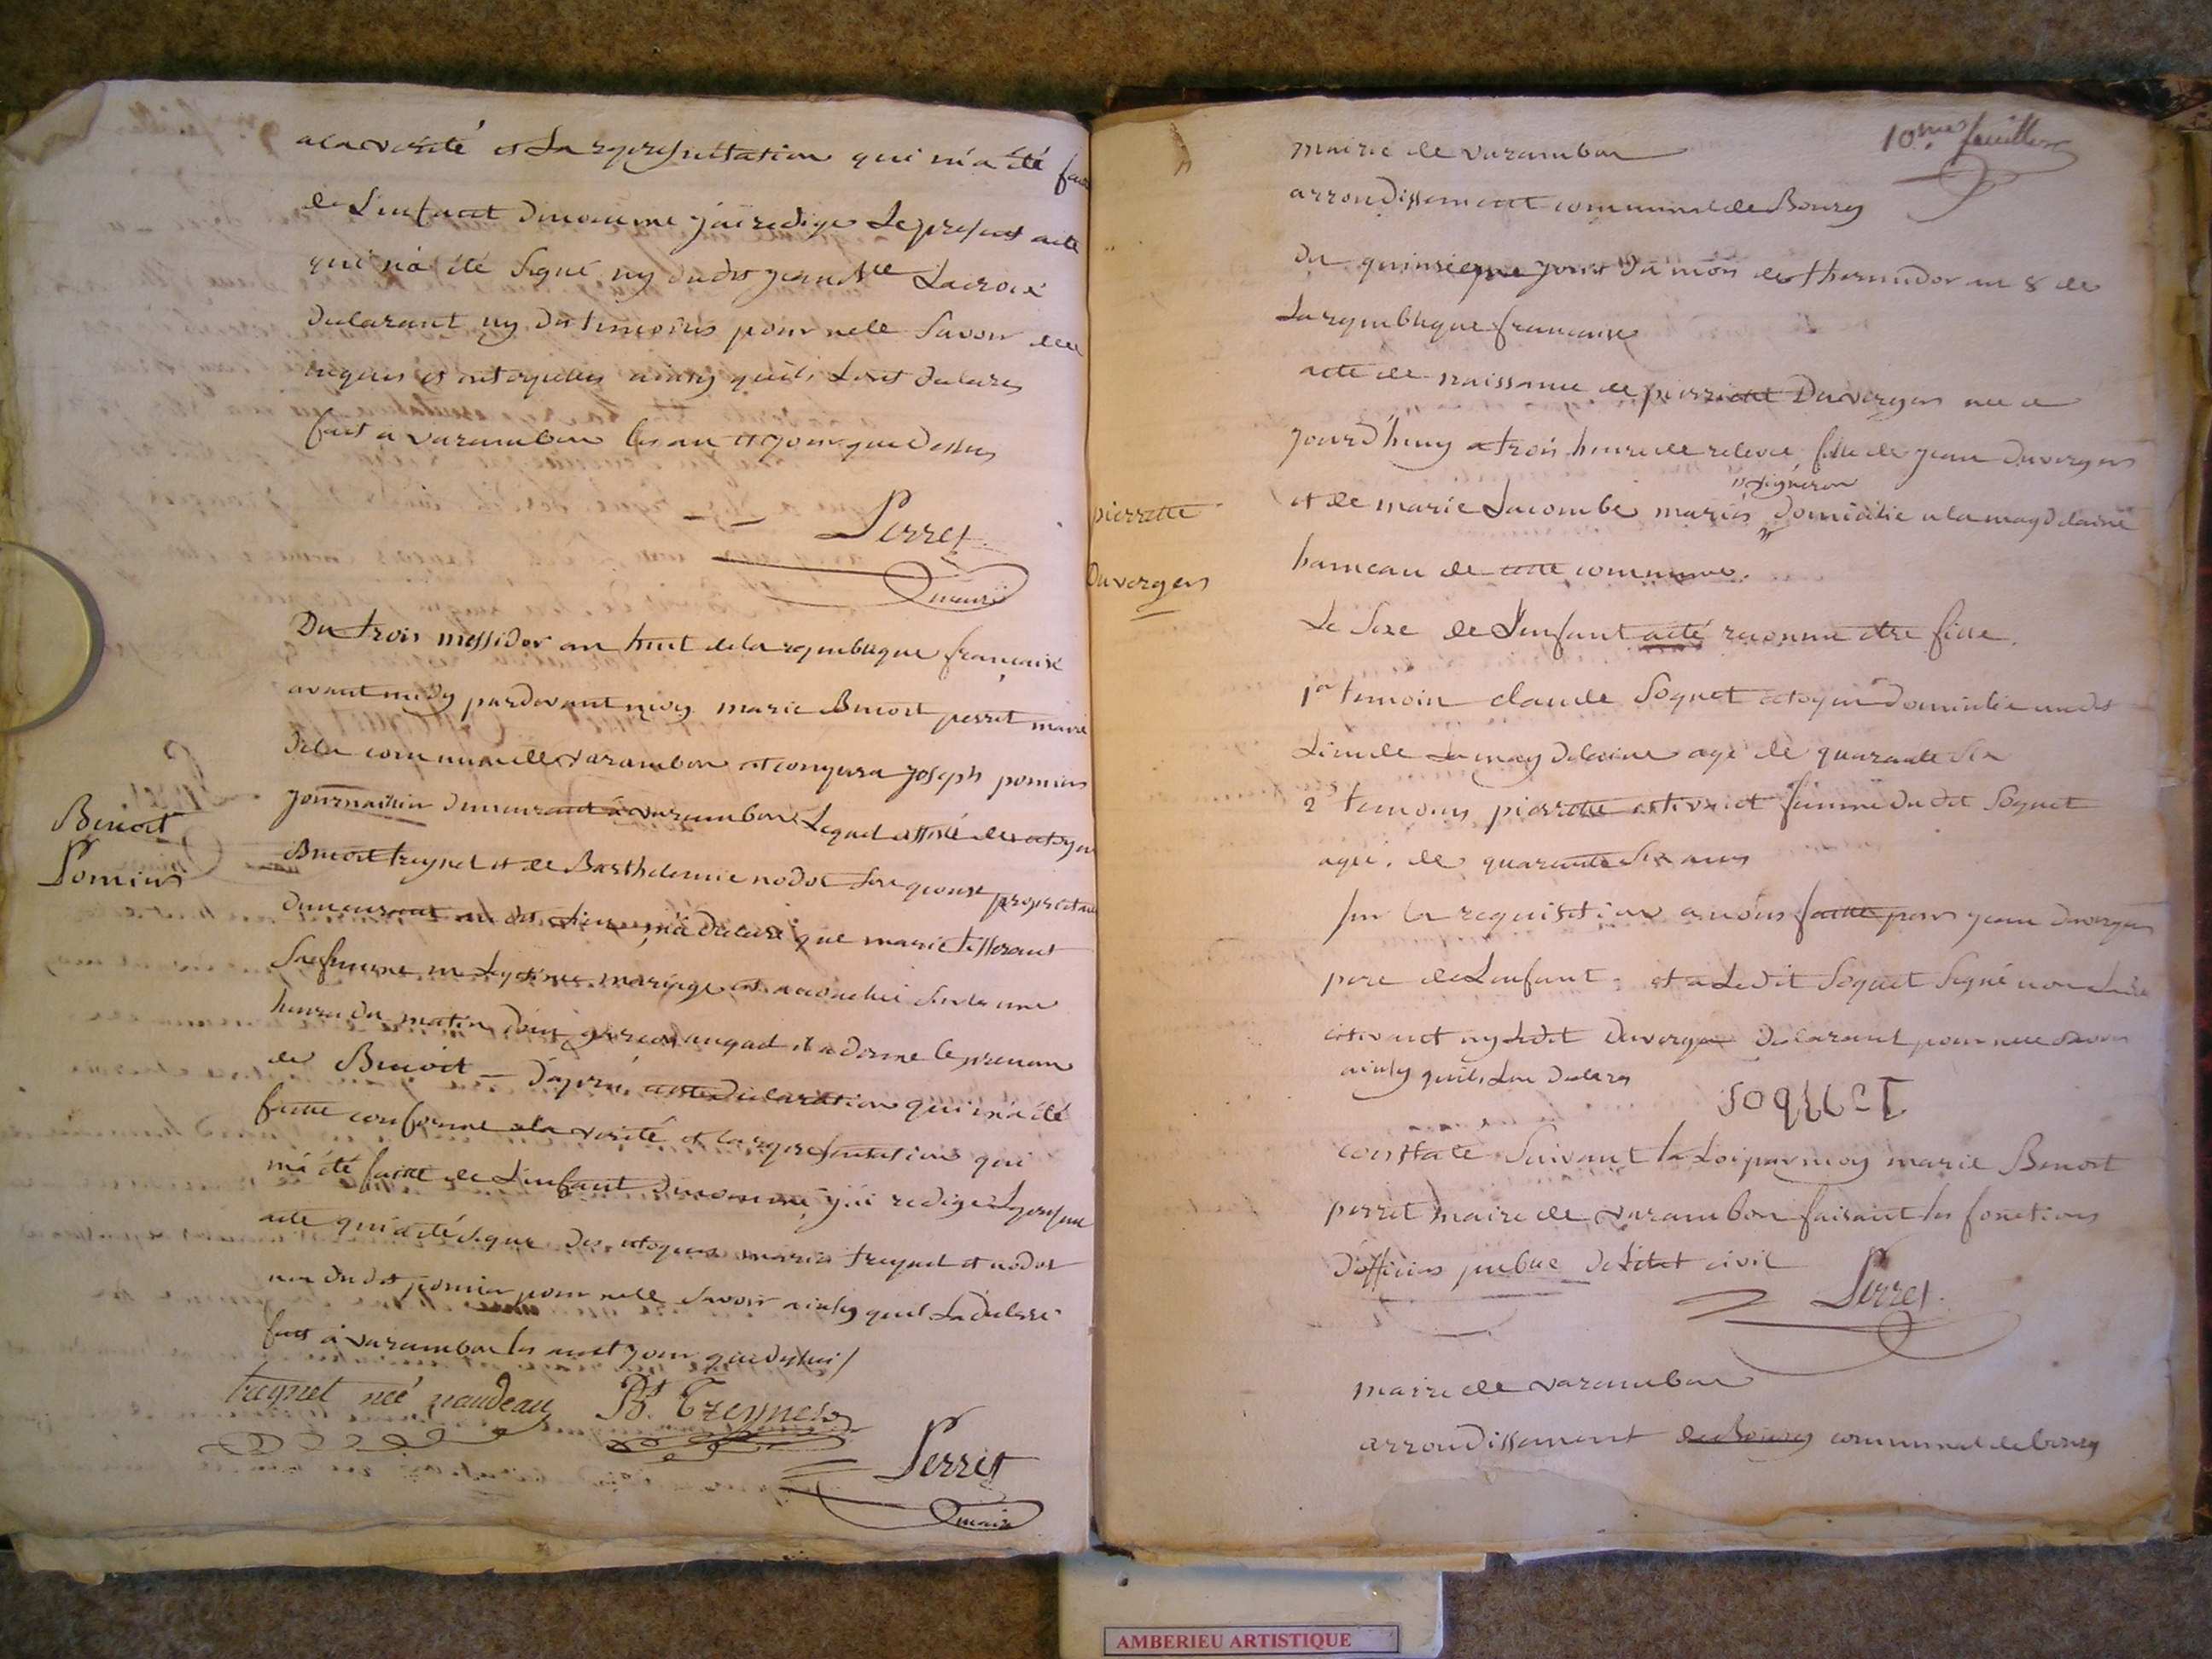 a la verité et La representation qui m'a été
de L'enfant denomme j'ai redigé Le present acte
qui n'a été Signé ny dudt Lacroix
declarant ny des temoins pour ne Savoir
fait a varambon les an et jour que dessus
Perret
maire
Du trois messidor an huit de la republique française
avant midy pardevant moy marie Benoit perret maire
de la commune de varambon est comparu joseph pomier
journaillier demeurant a varambon Lequel assisté des citoyens
Benoit treynet et de Barthelemie nodot proprietaires
demeurant au dit Lieu, m'a declaré que marie tisserant
Sa femme en Legitime mariage est accouchée une
heure du matin d'un garcon auquel il a donné le prenom
de Benoit — d'apres cette declaration qui m'a été
faitte conforme a la verité et la representation qui
m'a été faitte de L'enfant denommé j'ai redigé Le present
acte qui a été signé des citoyens treynet et nodot
non dudt pomier pour ne Savoir ainsy quil La declaré
fait a varambon les an et jour que dessus /
treynet neé naudeau B. Treynet
Perret
maire
Benoit
Pomier
10me feuillet
mairie de varambon
arrondissement communal de Bourg
Du quinsieme jour du mois de thermidor an 8 de
La republique francaise
acte de naissance de pierrette Duverger nee ce
jourd'huy a trois heure de relevée fille de jean Duverger
et de marie Lacombe mariés vigneron domicilie a la magdelaine
hameau de cette commune.
pierrette
Duverger
Le Sexe de L'enfant a eté reconnu etre fille.
1er temoin claude Soquet citoyen domicilie au dt
Lieu de La magdelaine agé de quarante six
2e temoins pierrette estivant femme du dit Soquet
agée de quarente Six ans
Sur la requisition a nous faitte par jean duverger
pere de Lenfant. et a Ledit Soquet Signé non Ladite
estivant ny Ledit Duverger declarant pour ne Savoir
ainsy quils Lon declare
SOQUET
constaté Suivant la Loi par moy marie Benoit
perret maire de varambon faisant les fonctions
d'officier public de L'etat civil
Perret
mairie de varambon
arrondissement de Bourg communal de bourg
AMBERIEU ARTISTIQUE